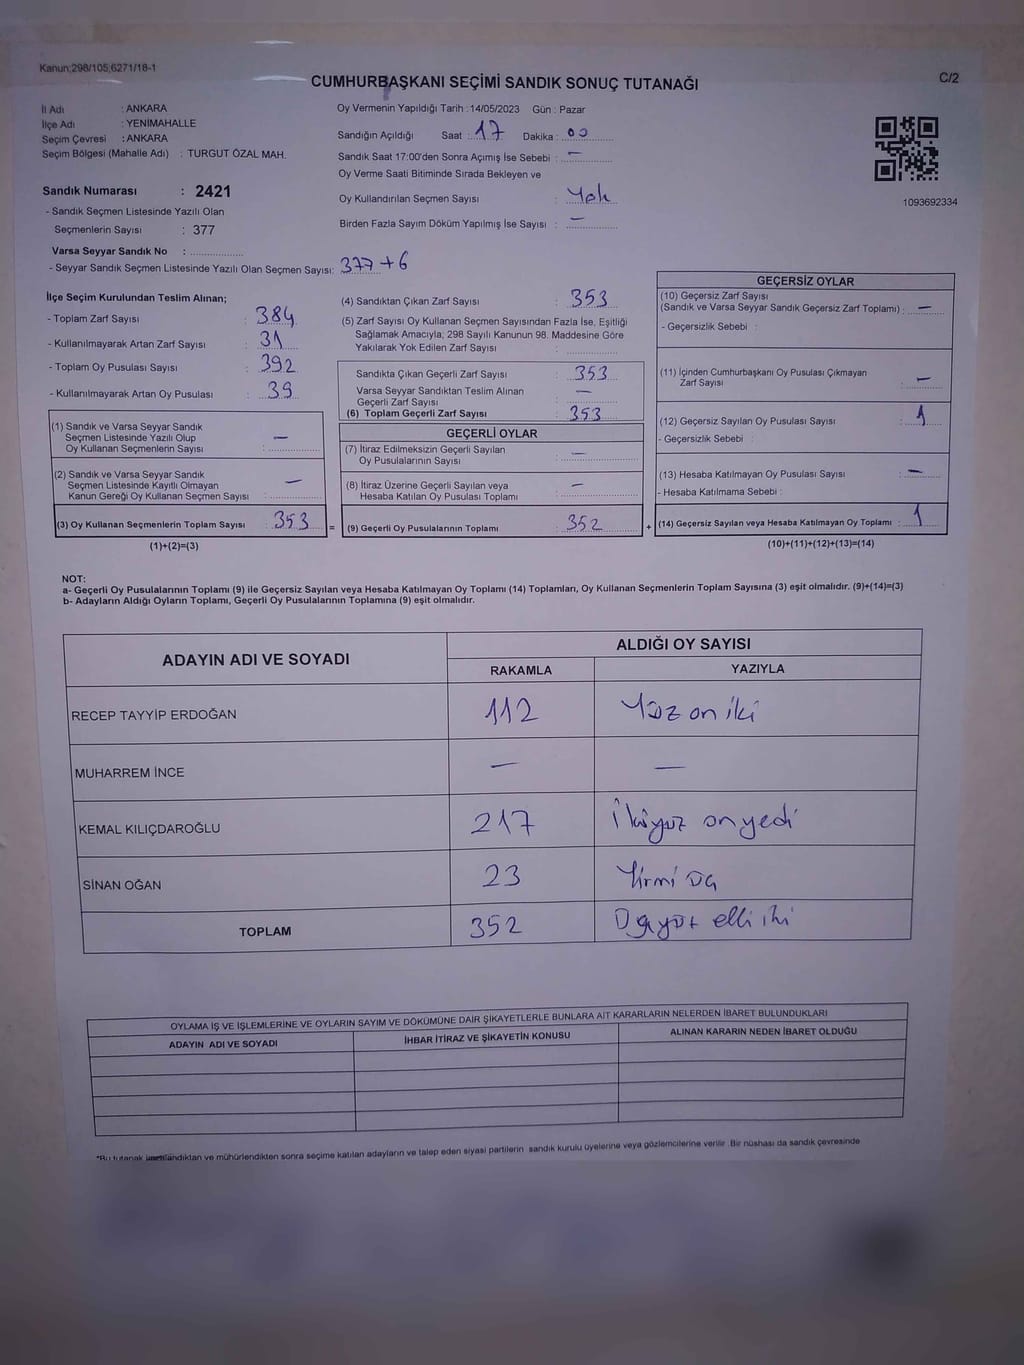 Kanun;298/105;6271/18-1
C/2
CUMHURBAŞKANI SEÇİMİ SANDIK SONUÇ TUTANAĞI
İl Adı : ANKARA
İlçe Adı : YENİMAHALLE
Seçim Çevresi : ANKARA
Seçim Bölgesi (Mahalle Adı) : TURGUT ÖZAL MAH.
Sandık Numarası : 2421
- Sandık Seçmen Listesinde Yazılı Olan
Seçmenlerin Sayısı : 377
Varsa Seyyar Sandık No :
- Seyyar Sandık Seçmen Listesinde Yazılı Olan Seçmen Sayısı: 377+6
Oy Vermenin Yapıldığı Tarih : 14/05/2023 Gün : Pazar
Sandığın Açıldığı Saat : 17 Dakika : 00
Sandık Saat 17:00'den Sonra Açımış İse Sebebi : —
Oy Verme Saati Bitiminde Sırada Bekleyen ve
Oy Kullandırılan Seçmen Sayısı : Yok
Birden Fazla Sayım Döküm Yapılmış İse Sayısı : —
1093692334
İlçe Seçim Kurulundan Teslim Alınan;
- Toplam Zarf Sayısı : 384
- Kullanılmayarak Artan Zarf Sayısı : 31
- Toplam Oy Pusulası Sayısı : 392
- Kullanılmayarak Artan Oy Pusulası : 39
(1) Sandık ve Varsa Seyyar Sandık
Seçmen Listesinde Yazılı Olup
Oy Kullanan Seçmenlerin Sayısı : —
(2) Sandık ve Varsa Seyyar Sandık
Seçmen Listesinde Kayıtlı Olmayan
Kanun Gereği Oy Kullanan Seçmen Sayısı : —
(3) Oy Kullanan Seçmenlerin Toplam Sayısı : 353
(1)+(2)=(3)
=
(4) Sandıktan Çıkan Zarf Sayısı : 353
(5) Zarf Sayısı Oy Kullanan Seçmen Sayısından Fazla İse, Eşitliği
Sağlamak Amacıyla; 298 Sayılı Kanunun 98. Maddesine Göre
Yakılarak Yok Edilen Zarf Sayısı :
Sandıkta Çıkan Geçerli Zarf Sayısı : 353
Varsa Seyyar Sandıktan Teslim Alınan
Geçerli Zarf Sayısı : —
(6) Toplam Geçerli Zarf Sayısı : 353
GEÇERLİ OYLAR
(7) İtiraz Edilmeksizin Geçerli Sayılan
Oy Pusulalarının Sayısı : —
(8) İtiraz Üzerine Geçerli Sayılan veya
Hesaba Katılan Oy Pusulası Toplamı : —
(9) Geçerli Oy Pusulalarının Toplamı : 352
+
GEÇERSİZ OYLAR
(10) Geçersiz Zarf Sayısı
(Sandık ve Varsa Seyyar Sandık Geçersiz Zarf Toplamı) : —
- Geçersizlik Sebebi :
(11) İçinden Cumhurbaşkanı Oy Pusulası Çıkmayan
Zarf Sayısı : —
(12) Geçersiz Sayılan Oy Pusulası Sayısı : 1
- Geçersizlik Sebebi :
(13) Hesaba Katılmayan Oy Pusulası Sayısı : —
- Hesaba Katılmama Sebebi :
(14) Geçersiz Sayılan veya Hesaba Katılmayan Oy Toplamı : 1
(10)+(11)+(12)+(13)=(14)
NOT:
a- Geçerli Oy Pusulalarının Toplamı (9) ile Geçersiz Sayılan veya Hesaba Katılmayan Oy Toplamı (14) Toplamları, Oy Kullanan Seçmenlerin Toplam Sayısına (3) eşit olmalıdır. (9)+(14)=(3)
b- Adayların Aldığı Oyların Toplamı, Geçerli Oy Pusulalarının Toplamına (9) eşit olmalıdır.
ADAYIN ADI VE SOYADI
ALDIĞI OY SAYISI
RAKAMLA YAZIYLA
RECEP TAYYİP ERDOĞAN 112 Yüz on iki
MUHARREM İNCE — —
KEMAL KILIÇDAROĞLU 217 İkiyüz onyedi
SİNAN OĞAN 23 Yirmi üç
TOPLAM 352 Üçyüz elli iki
OYLAMA İŞ VE İŞLEMLERİNE VE OYLARIN SAYIM VE DÖKÜMÜNE DAİR ŞİKAYETLERLE BUNLARA AİT KARARLARIN NELERDEN İBARET BULUNDUKLARI
ADAYIN ADI VE SOYADI İHBAR İTİRAZ VE ŞİKAYETİN KONUSU ALINAN KARARIN NEDEN İBARET OLDUĞU
*Bu tutanak imzalandıktan ve mühürlendikten sonra seçime katılan adayların ve talep eden siyasi partilerin sandık kurulu üyelerine veya gözlemcilerine verilir. Bir nüshası da sandık çevresinde